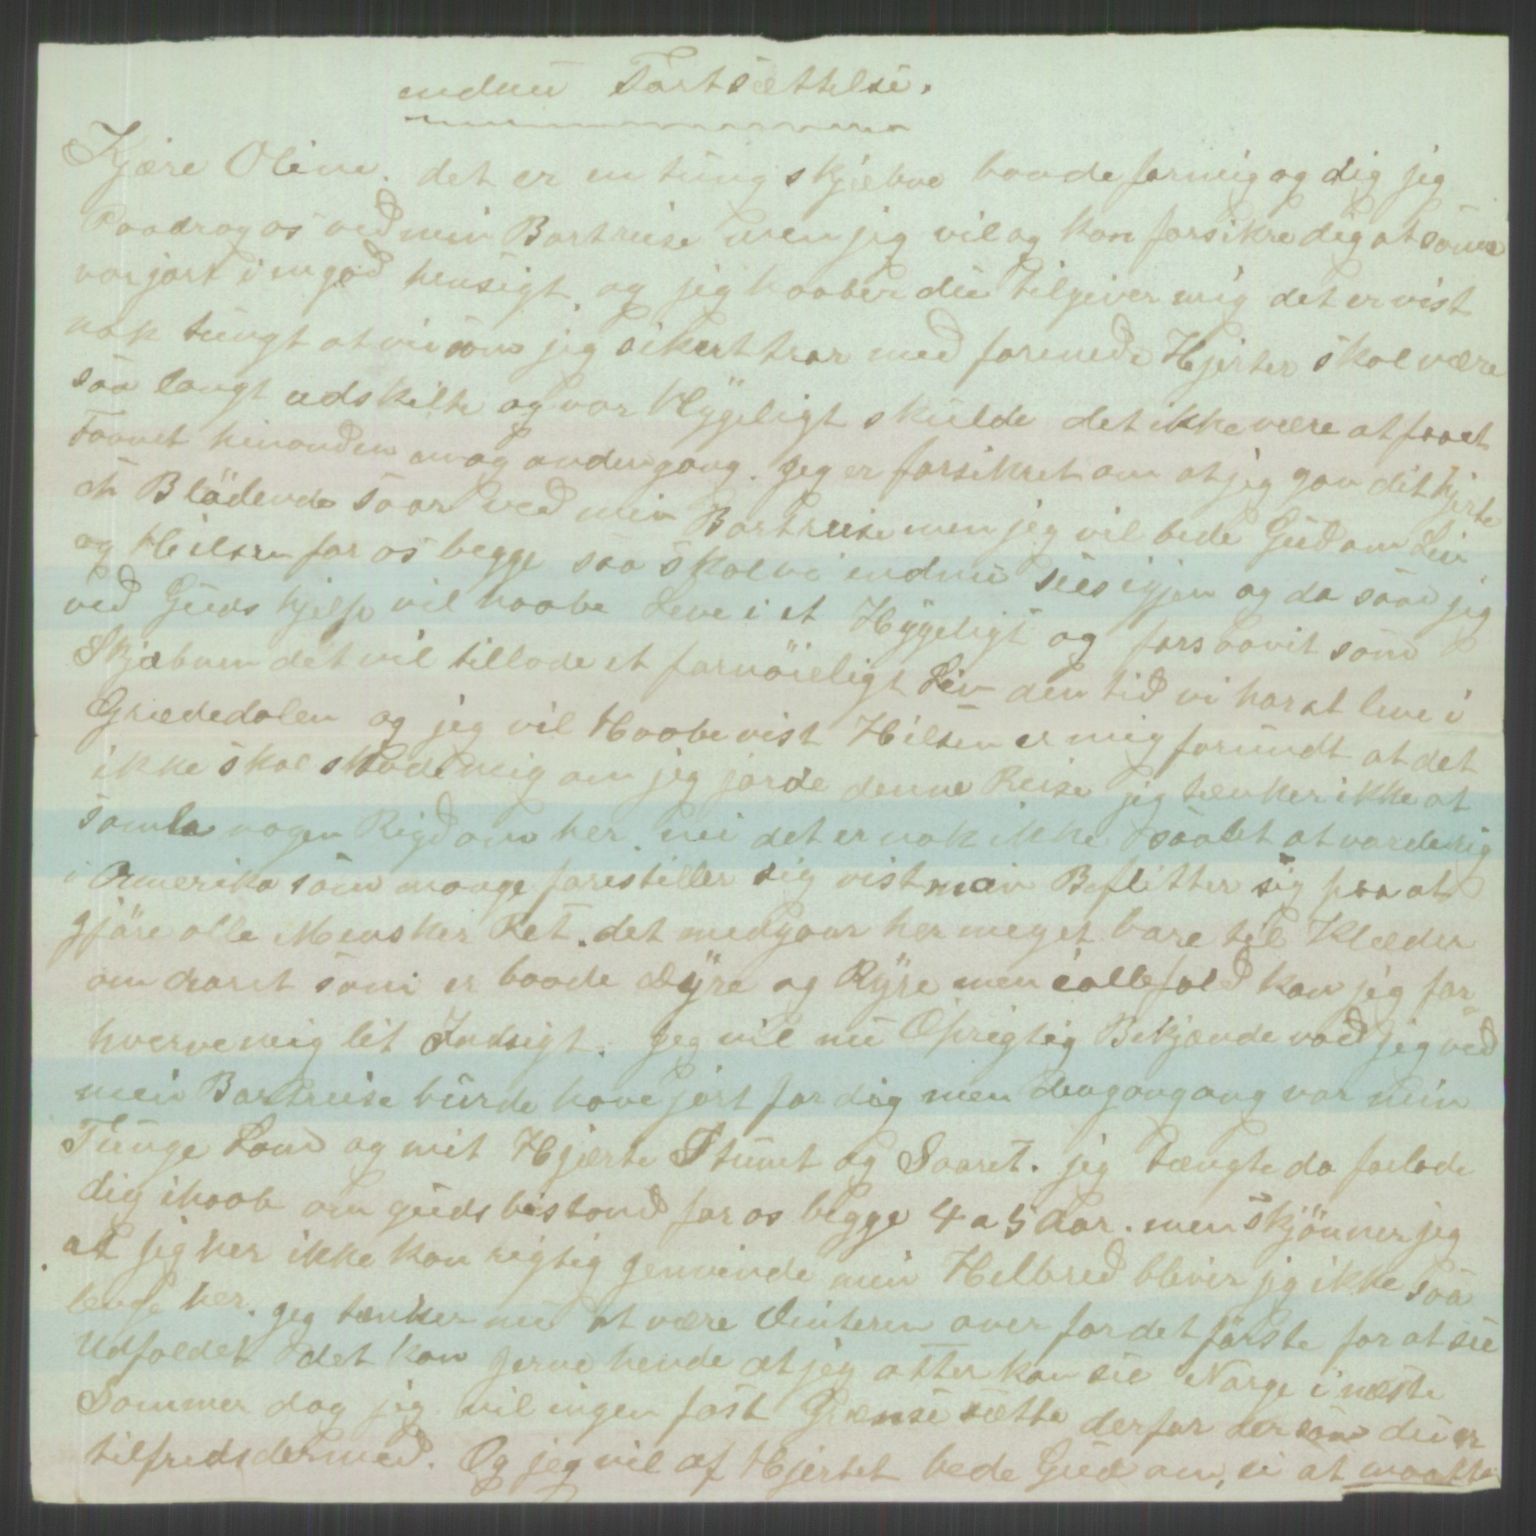 endnu Fortsættelse.
Kjære Oline. det er en tung skjæbne baade for mig og dig jeg
Paadrog os ved min Bortreise men jeg vil og kan forsikre dig at somm
var jort i en god hensigt, og jeg haaber du tilgiver mig det er vist
nok tungt at vi som jeg sikert tror med forenede Hjerter skal være
saa langt adskilte og vor Hyggeligt skulde det ikke være at faaet
Favnet hinanden en og anden gang. Jeg er forsikret om at jeg gav dit hjerte
et Blödende saar ved min Bortreise men jeg vil bede Gud om Liv
og Helsen for os begge saa skal vi endnu sees igjen og da saa jeg
ved Guds hjelp vil haabe Leve i et Hyggeligt og forsaavit som
Skjæbnen det vil tillade et fornöieligt Liv den tid vi har at leve i
Grædedalen og jeg vil Haabe vist Hilsen er mig forundt at det
ikke skal skade mig om jeg jorde denne Reise jeg tænker ikke at
samla nogen Rigdom her, nei det er nok ikke saalet at vorde rig
i Amerika som mange forestiller sig vist man Beflitter sig paa at
gjöre alle Mensker Ret. det medgaar her meget bare til Klæder
om aaret som er baade dyre og Ryre men iallefald kan jeg for
hverve mig lit Indsigt. Jeg vil nu Oprigtig Bekjænde vad jeg ved
min Bortreise burde have jort for dig men dengang ang var min
Tunge Lam og mit Hjærte Stumt og Saaret. jeg tængte da forlade
dig ihaab om guds bistand for os begge 4 a 5 Aar. men skjönner jeg
at jeg her ikke kan rigtig genvinde min Helbred blivir jg ikke saa
lenge her. jeg tænker nu at være Vinteren over for det förste for at see
Udfaldet det kan jerne hende at jeg atter kan see Norge i næste
Sommer dog jeg vil ingen fast Grænse sætte derfor dersom du er
tilfreds dermed. Og jeg vil af Hjertet bede Gud om, vi at maatte